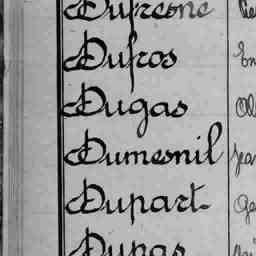 Dufresne
Dufros
Dugas
Dumesnil
Dupart
Dupas